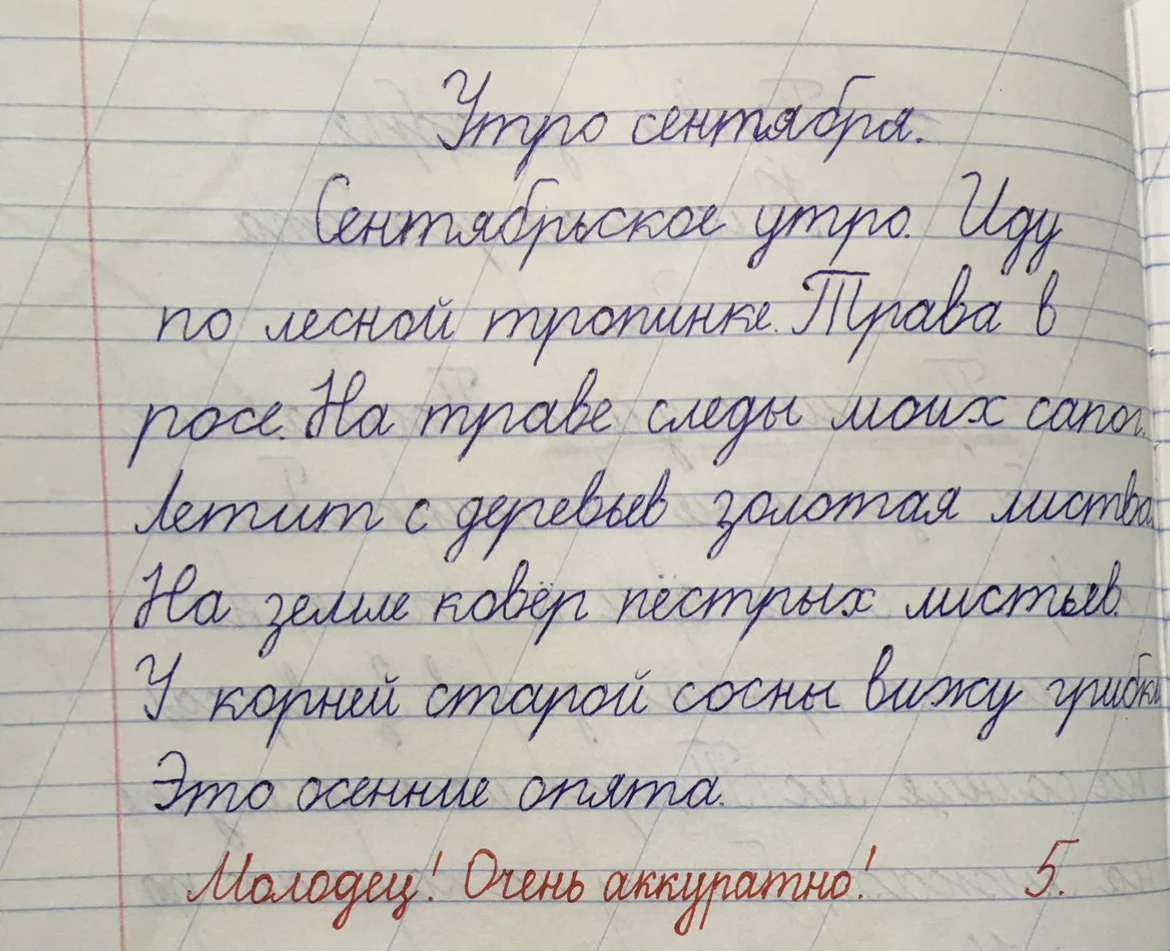 Утро сентября.
Сентябрьское утро. Иду
по лесной тропинке. Трава в
росе. На траве следы моих сапог.
Летит с деревьев золотая листва.
На земле ковёр пёстрых листьев.
У корней старой сосны вижу грибки.
Это осенние опята.
Молодец! Очень аккуратно! 5.